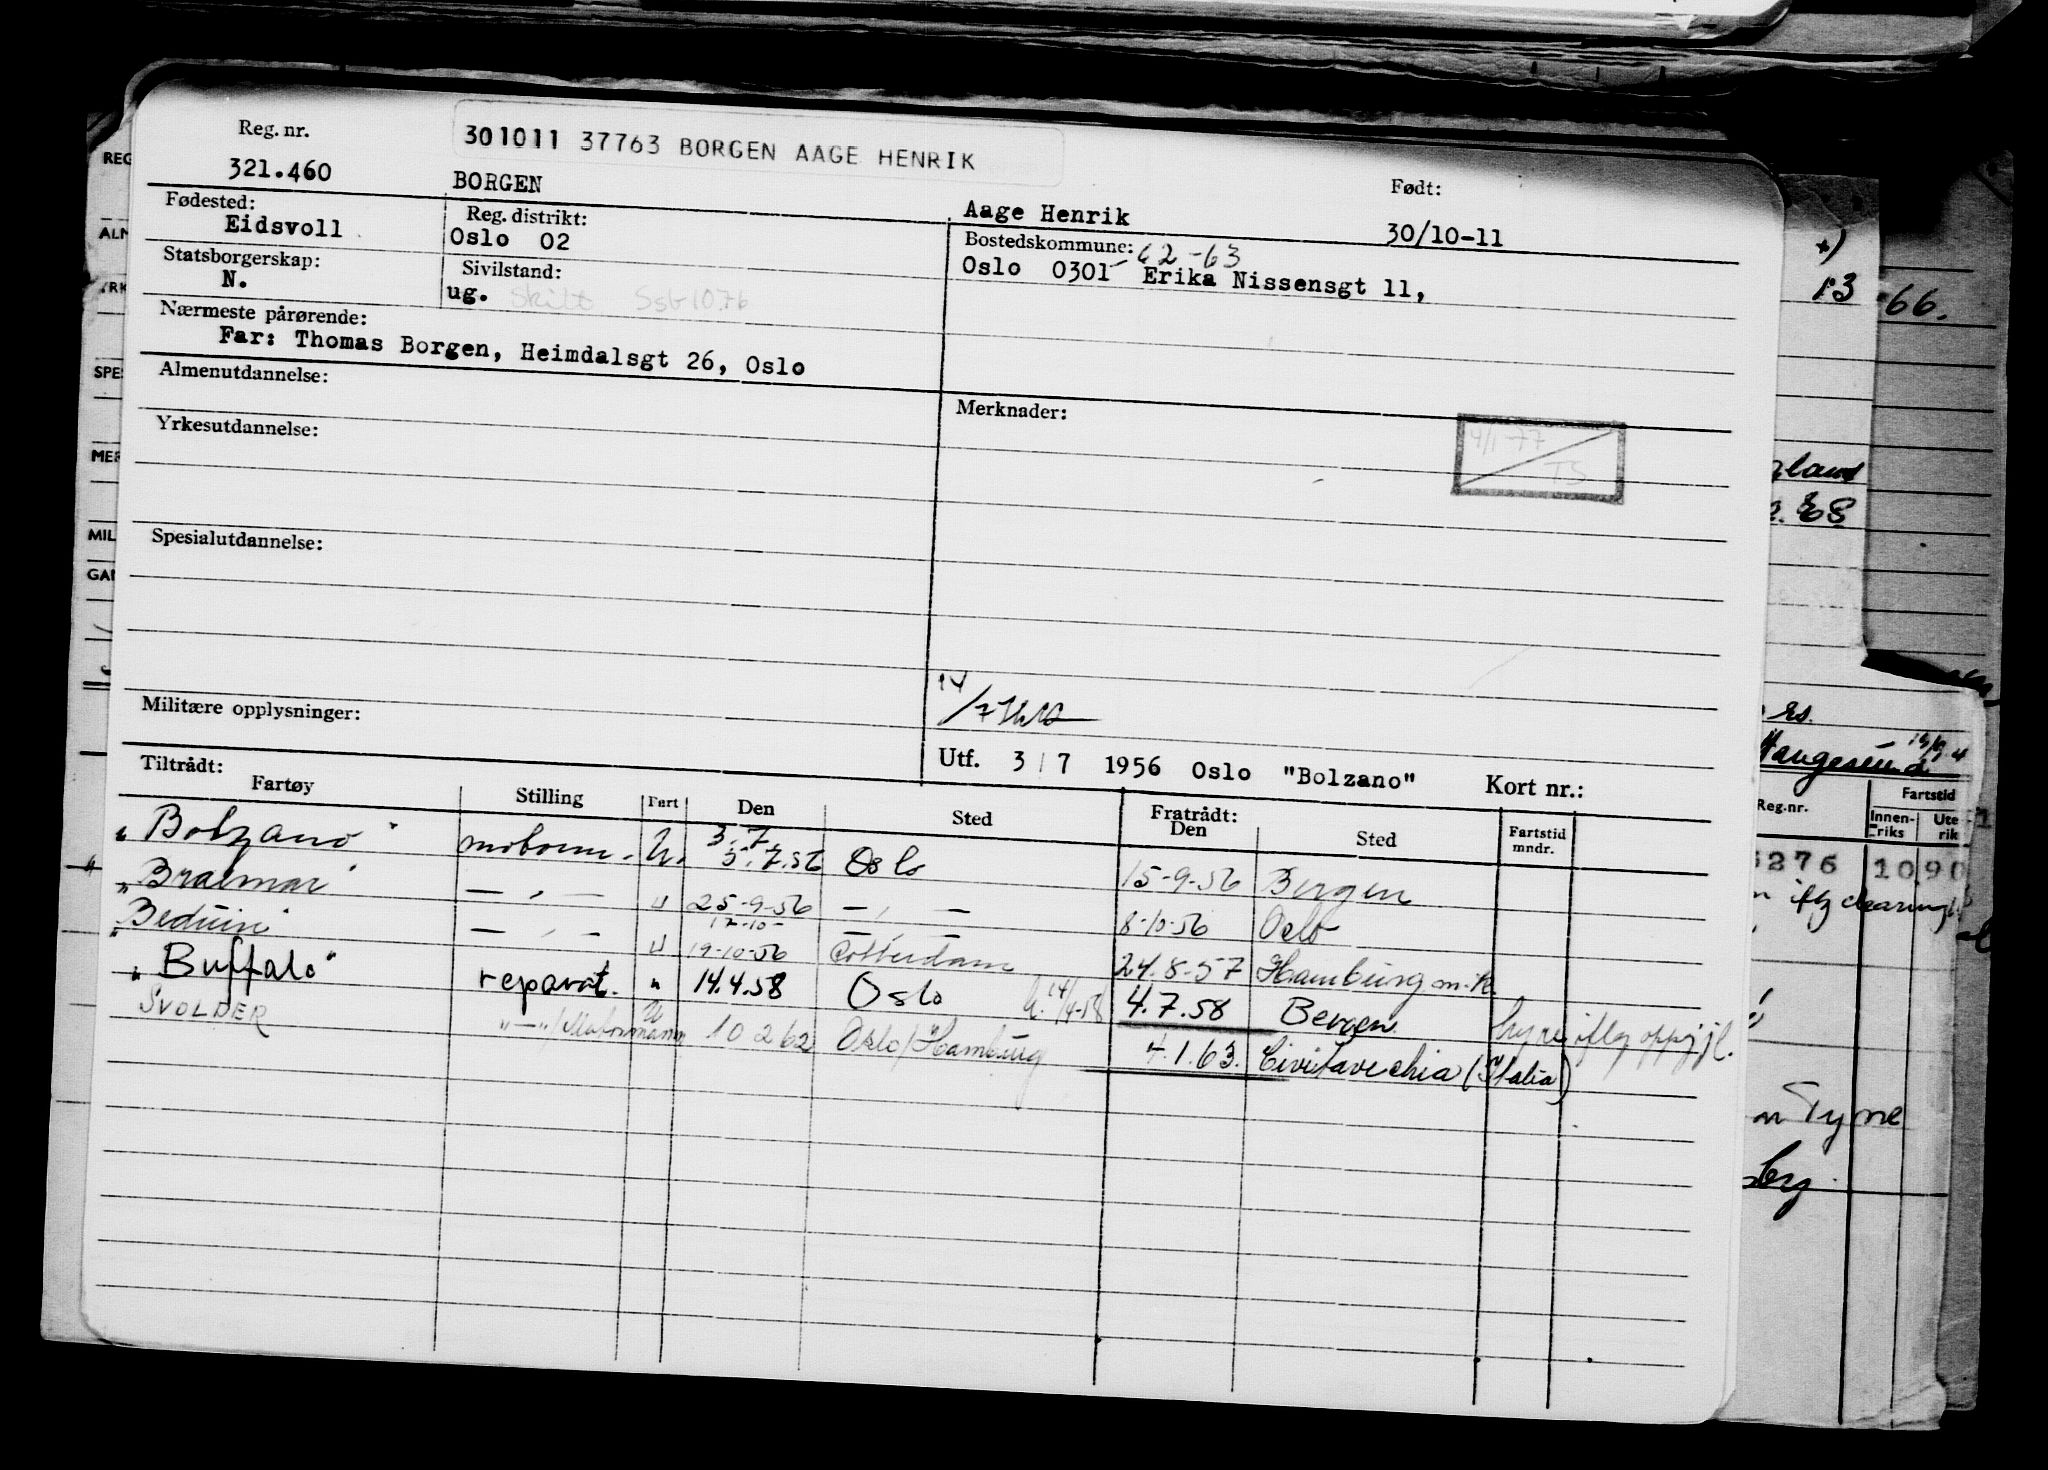 Reg. nr.
301011 37763 BORGEN AAGE HENRIK
321.460 BORGEN Aage Henrik Født: 30/10-11
Fødested: Eidsvoll
Reg. distrikt: Oslo 02
Bostedskommune: 62-63
Oslo 0301 Erika Nissensgt 11,
Statsborgerskap: N.
Sivilstand: ug. Skilt Ssb 1076
Nærmeste pårørende:
Far: Thomas Borgen, Heimdalsgt 26, Oslo
Almenutdannelse:
Merknader:
4/1-77
TS
Yrkesutdannelse:
Spesialutdannelse:
Militære opplysninger:
14/7
Utf. 3/7 1956 Oslo "Bolzano" Kort nr.:
Tiltrådt: Fratrådt:
Fartøy Stilling Fart Den Sted Den Sted Fartstid mndr.
"Bolzano" motorm. U. 3.7. 5.7.56 Oslo 15-9-56 Bergen
"Braemar" — " — " 25-9-56 — " — 8-10-56 Oslo
"Beduin" — " — " 17-10- 19-10-56 — " — Rotterdam 24.8.57 Hamburg m.k.
"Buffalo" reparat. " 14.4.58 Oslo 14/4-58 4.7.58 Bergen hyre iflg oppgj
SVOLDER "—"/Motormann U 10 2 62 Oslo/Hamburg 4.1.63. Civitavechia (Italia)
*)
13
66.
Haugesund
Reg.nr.
Fartstid
Innenriks
Ute
rik
5276 10 90
iflg clearing
Tyne
REG
ALM
YRK
SPES
MER
MIL